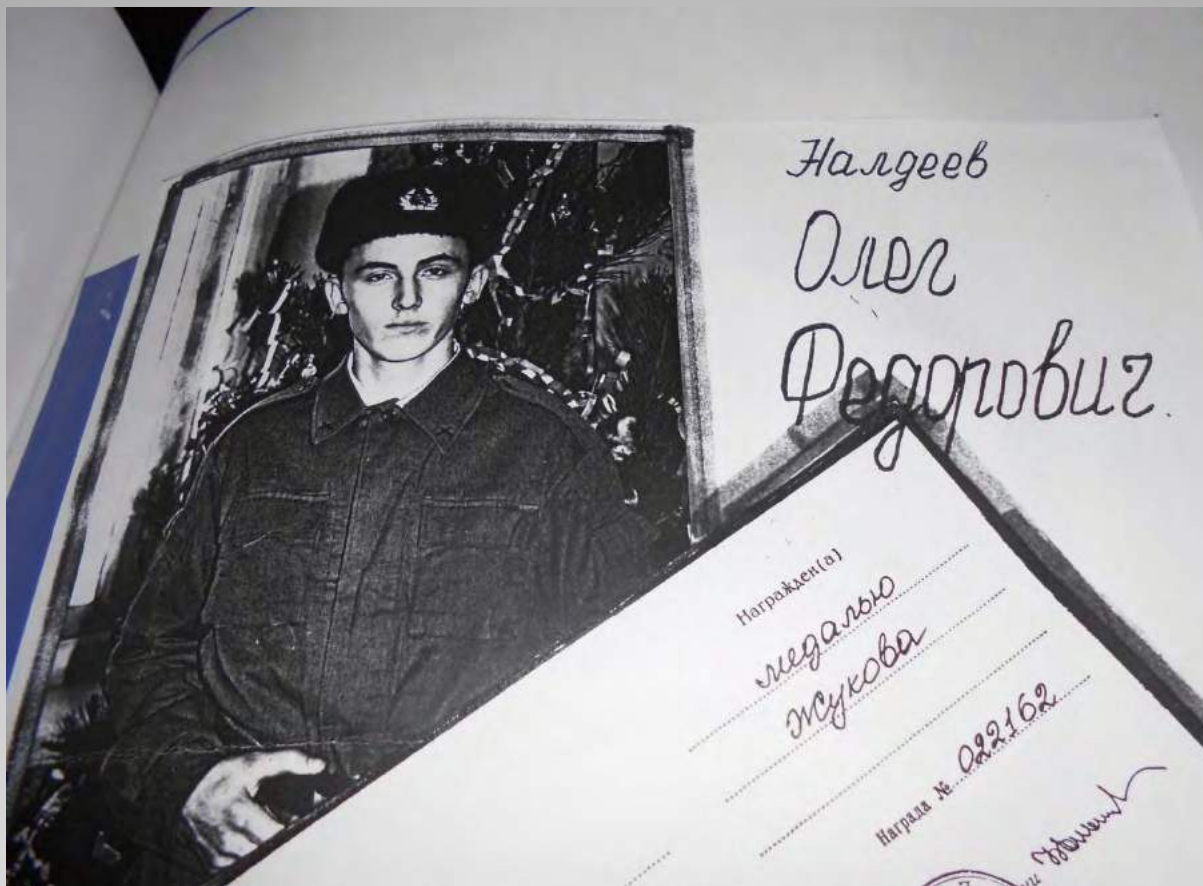 Налдеев
Олег
Федорович.
Награжден(а)
медалью
Жукова
Награда № 022162